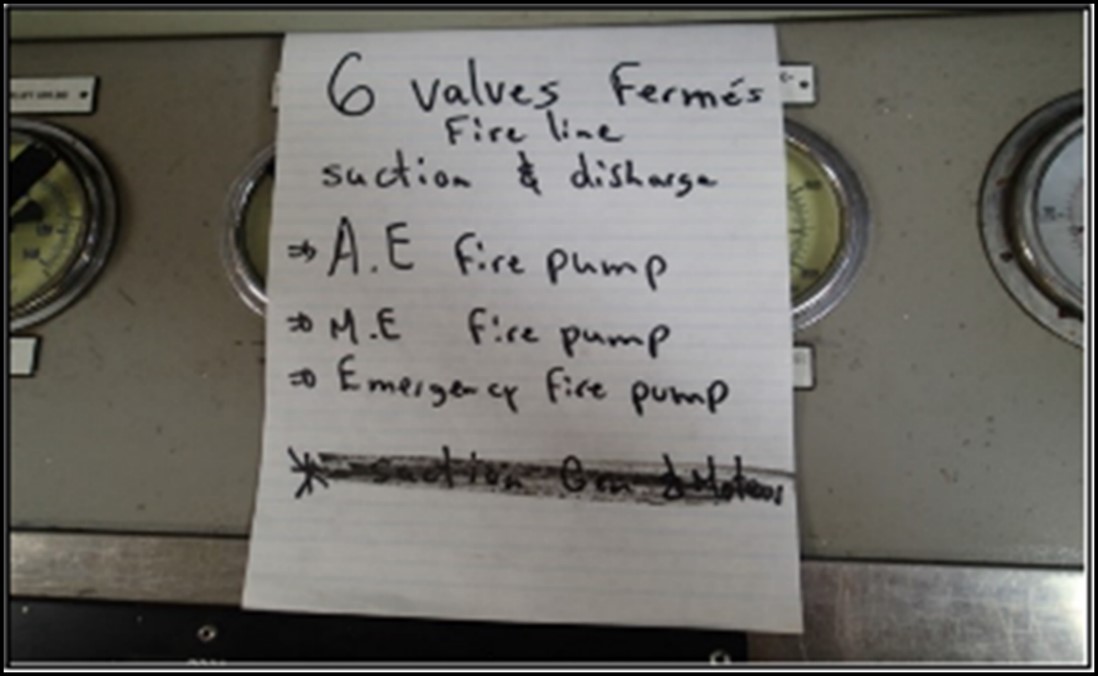 6 valves Fermés
Fire line
suction & discharge
⇒ A.E fire pump
⇒ M.E fire pump
⇒ Emergency fire pump
* suction Gen &